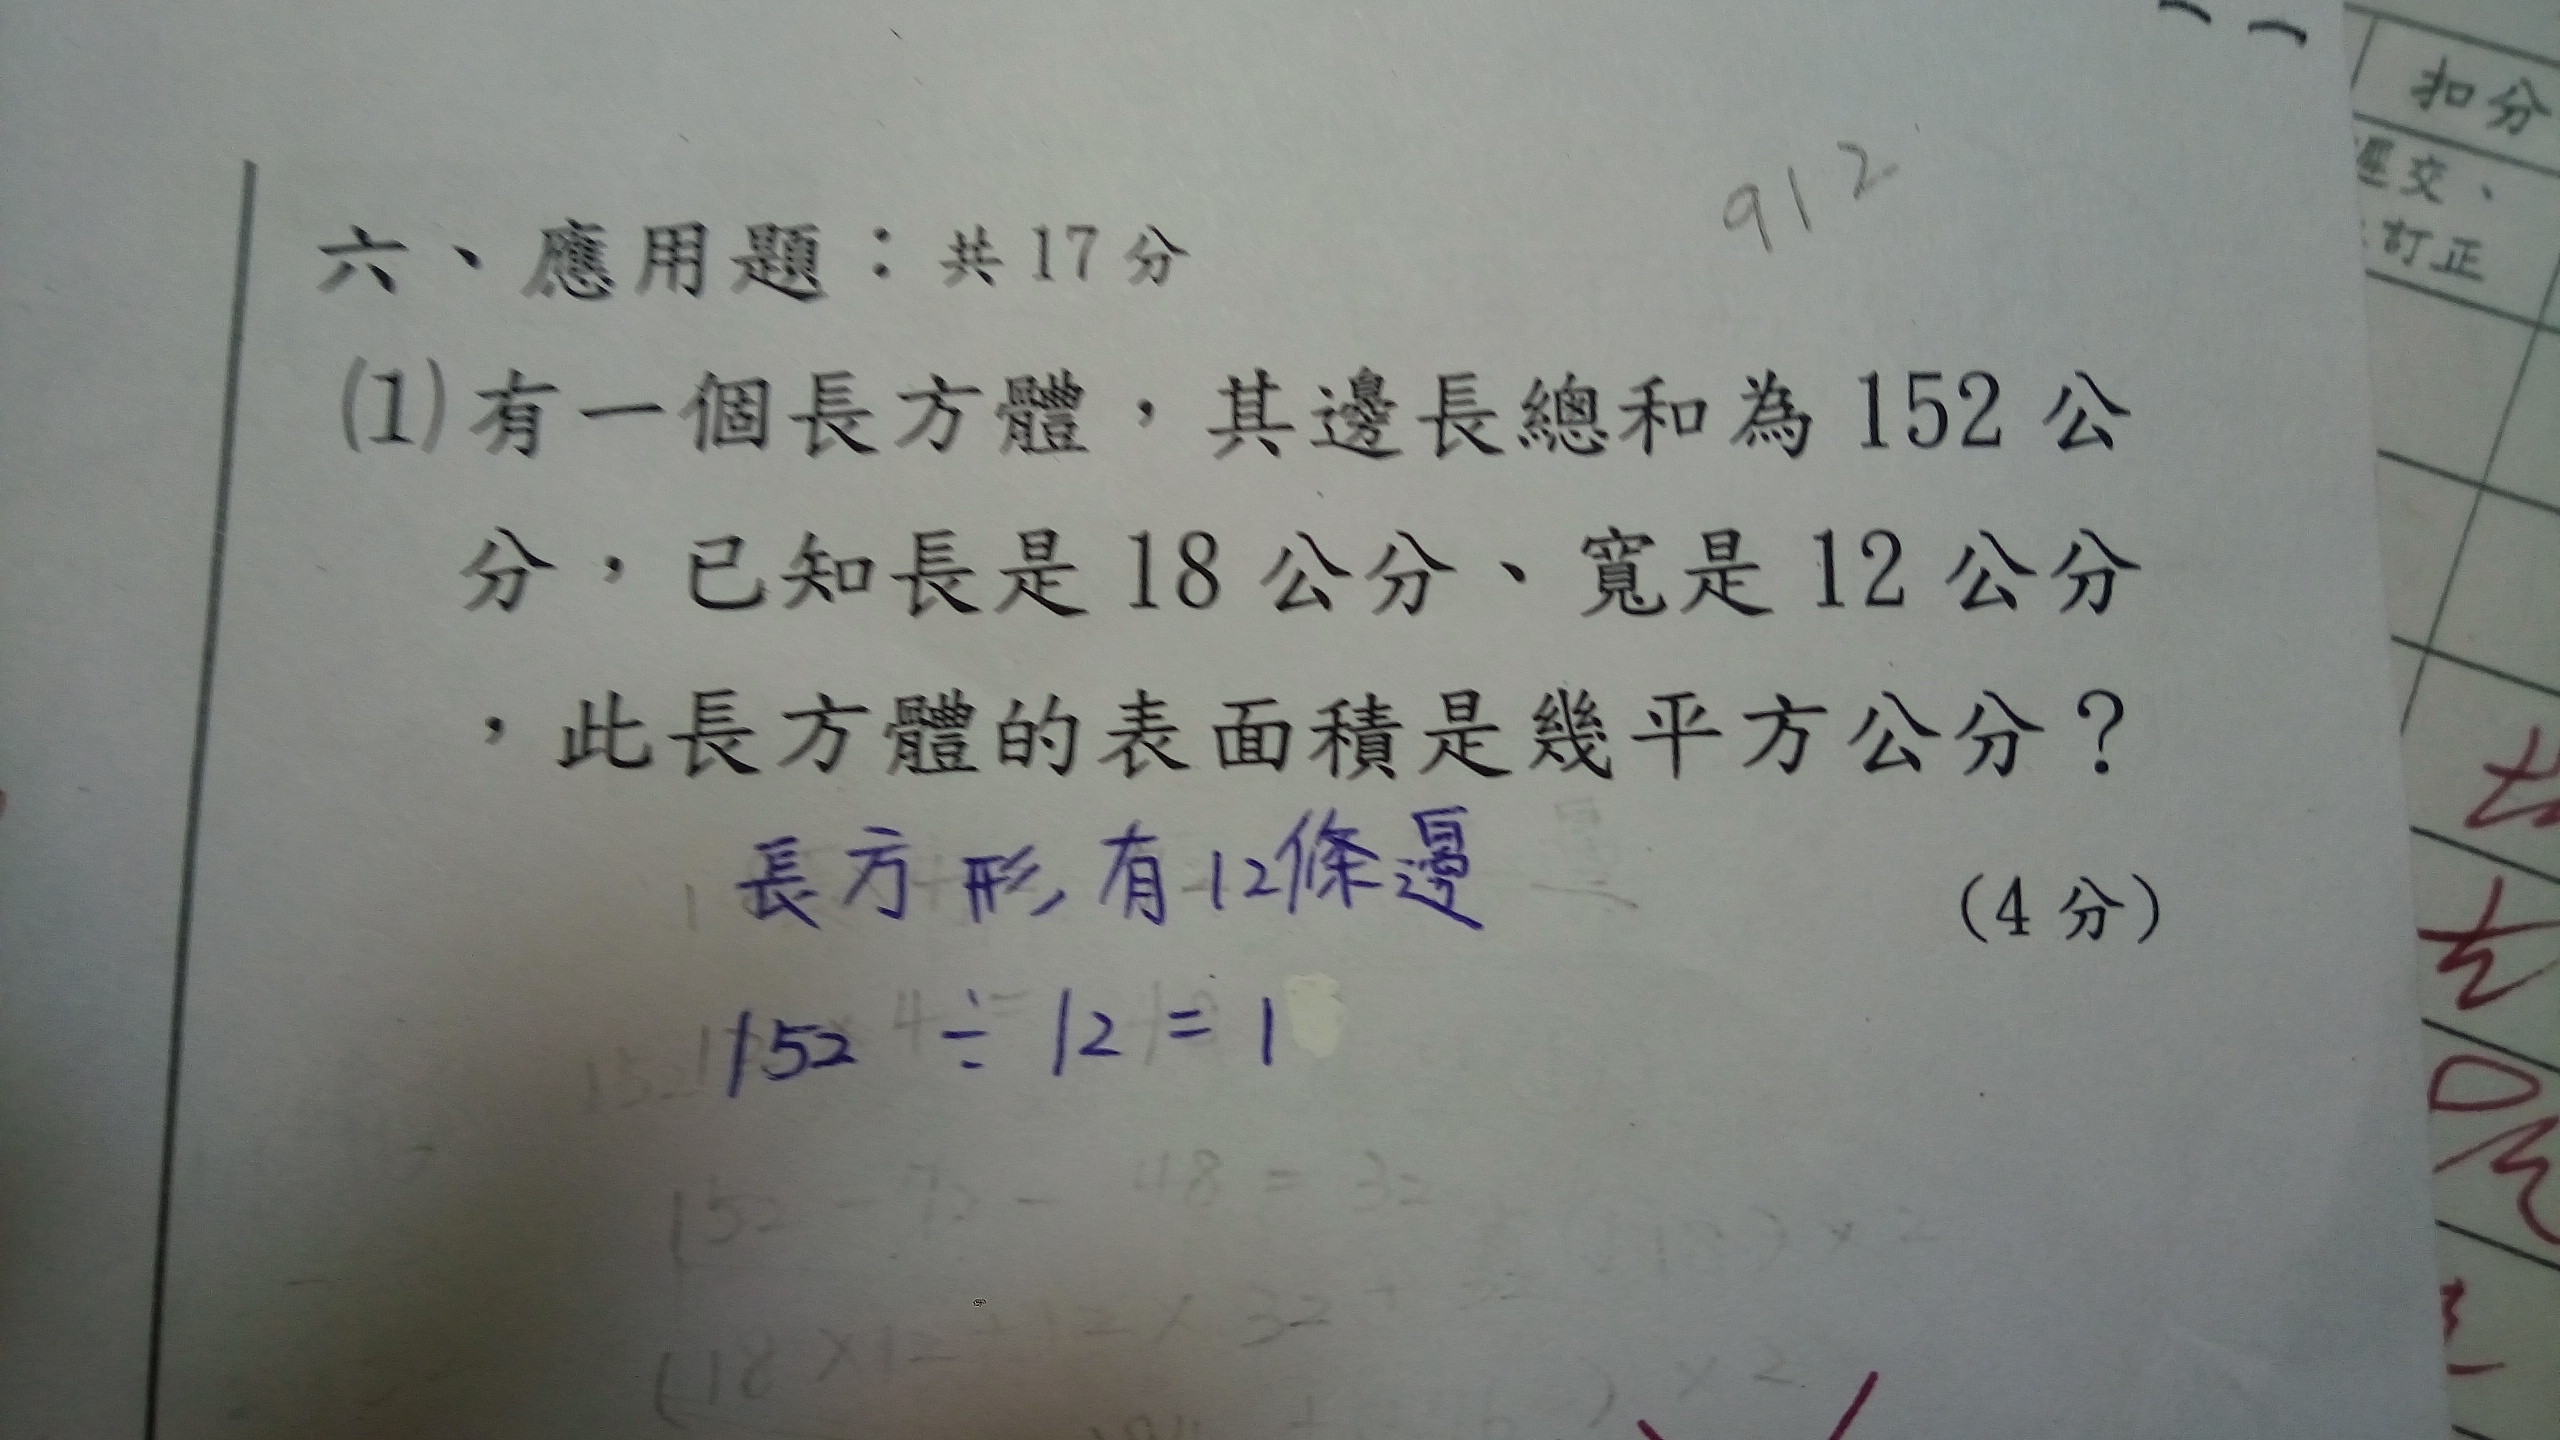 扣分
遲交、
訂正
912
六、應用題：共17分
(1)有一個長方體，其邊長總和為152公
分，已知長是18公分、寬是12公分
，此長方體的表面積是幾平方公分？
長方形,有12條邊
(4分)
152 ÷ 12 = 1
152 - 72 - 48 = 32